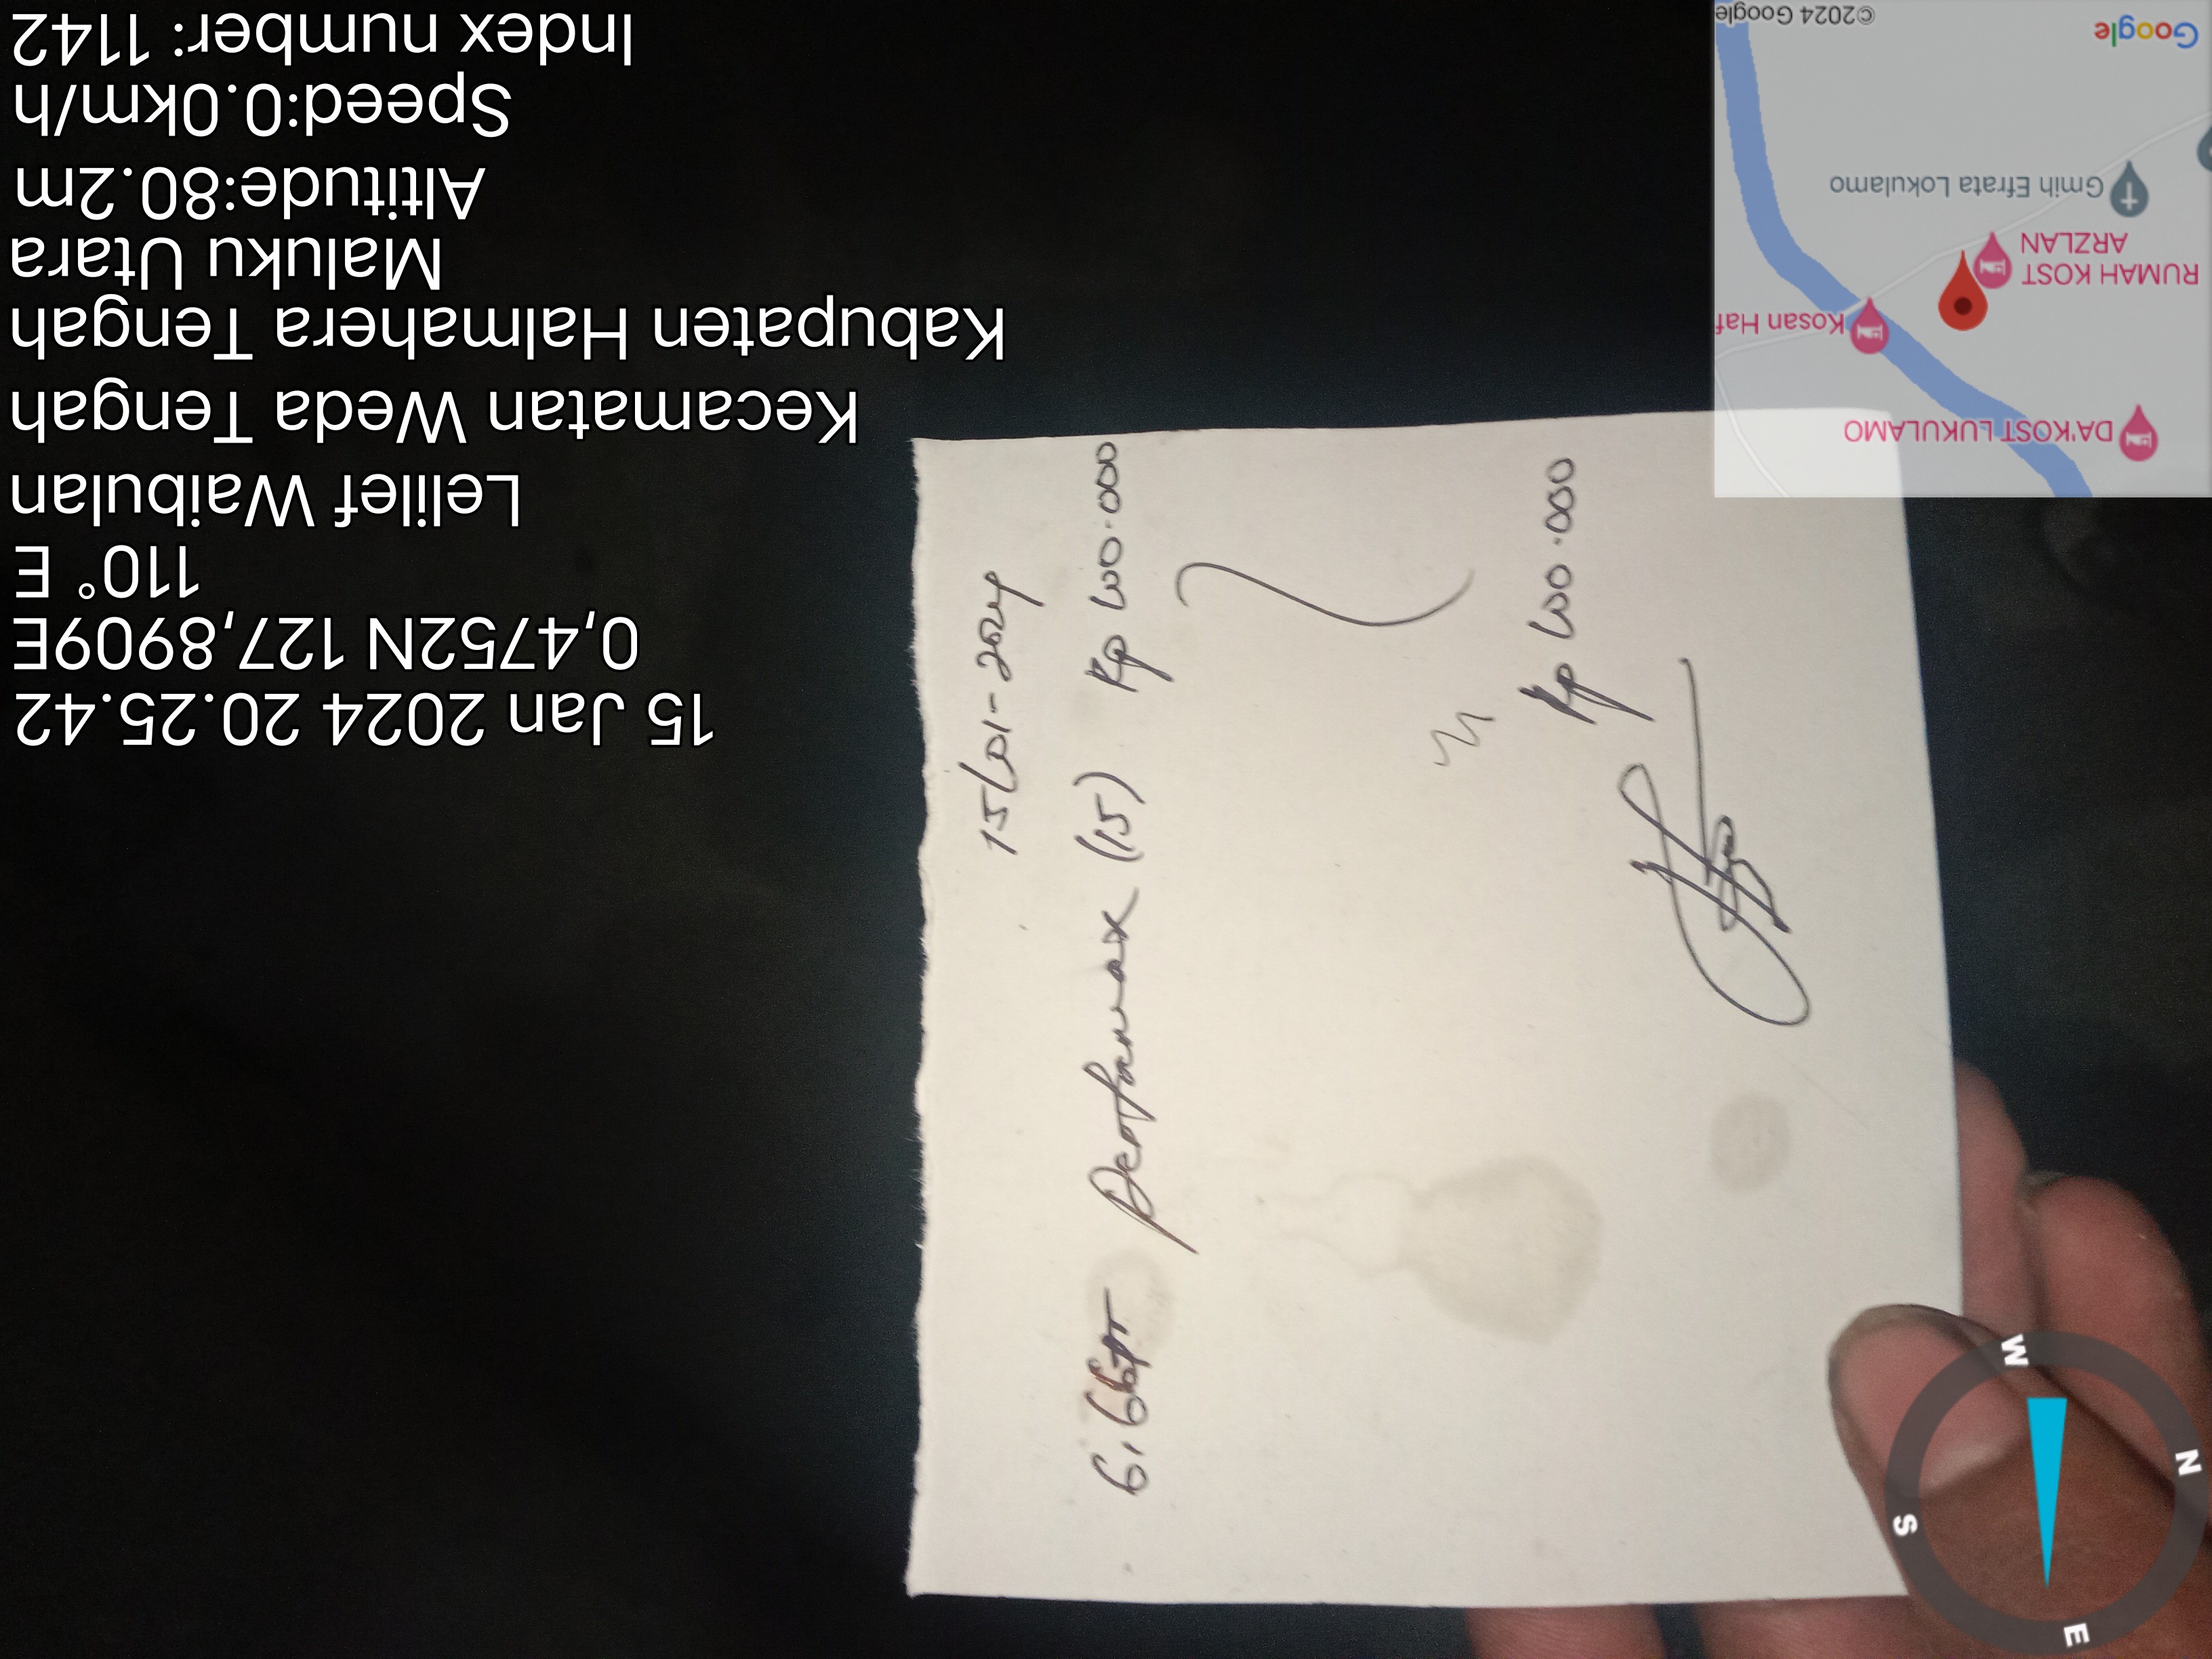 15 Jan 2024 20.25.42
0,4752N 127,8909E
110° E
Lelilef Waibulan
Kecamatan Weda Tengah
Kabupaten Halmahera Tengah
Maluku Utara
Altitude:80.2m
Speed:0.0km/h
Index number: 1142
DA'KOST LUKULAMO
Kosan Haf
RUMAH KOST
ARZLAN
Gmih Efrata Lokulamo
Google
©2024 Google
W
N
S
E
15/01-2024
Pertamax (15) Rp 100.000
Rp 100.000